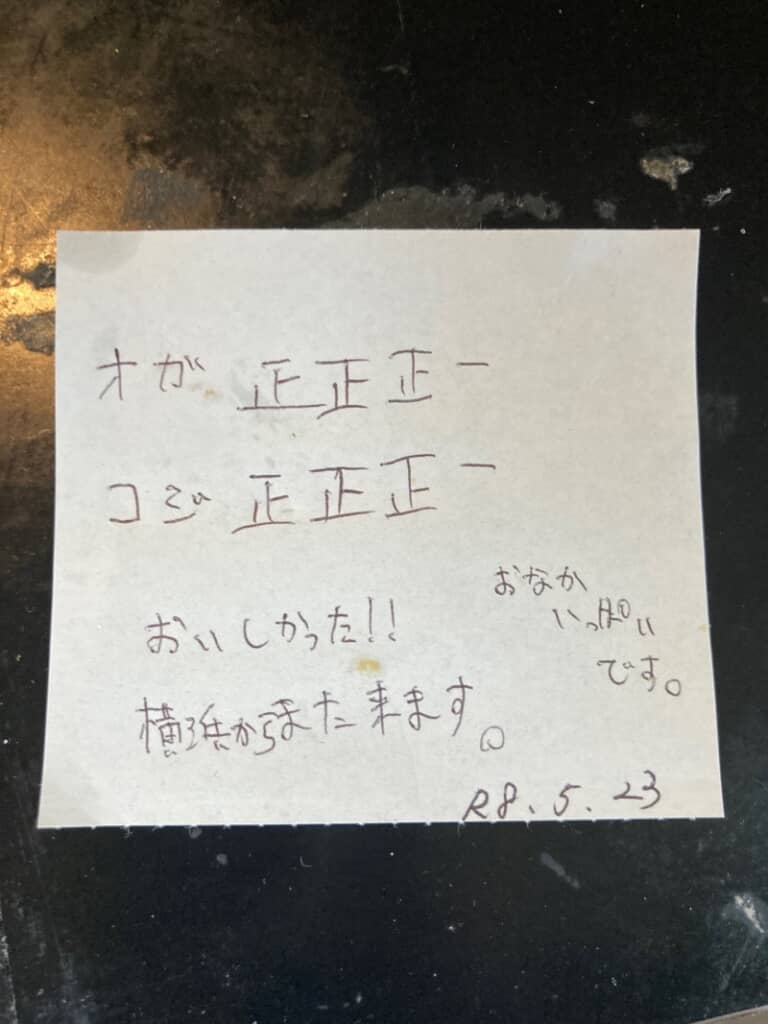 オガ 正正正一
コジ 正正正一
おいしかった!!
横浜からまた来ます。
おなか
いっぱい
です。
R8.5.23